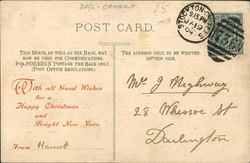 POST CARD.
THIS SPACE, AS WELL AS THE BACK, MAY
NOW BE USED FOR COMMUNICATIONS.
FOR FOREIGN POSTAGE THE BACK ONLY.
(POST OFFICE REGULATIONS.)
THE ADDRESS ONLY TO BE WRITTEN
ON THIS SIDE.
With all Good Wishes
for a
Happy Christmas
and a
Bright New Year.
From Harriet
Mr J Mighway
28
Darlington